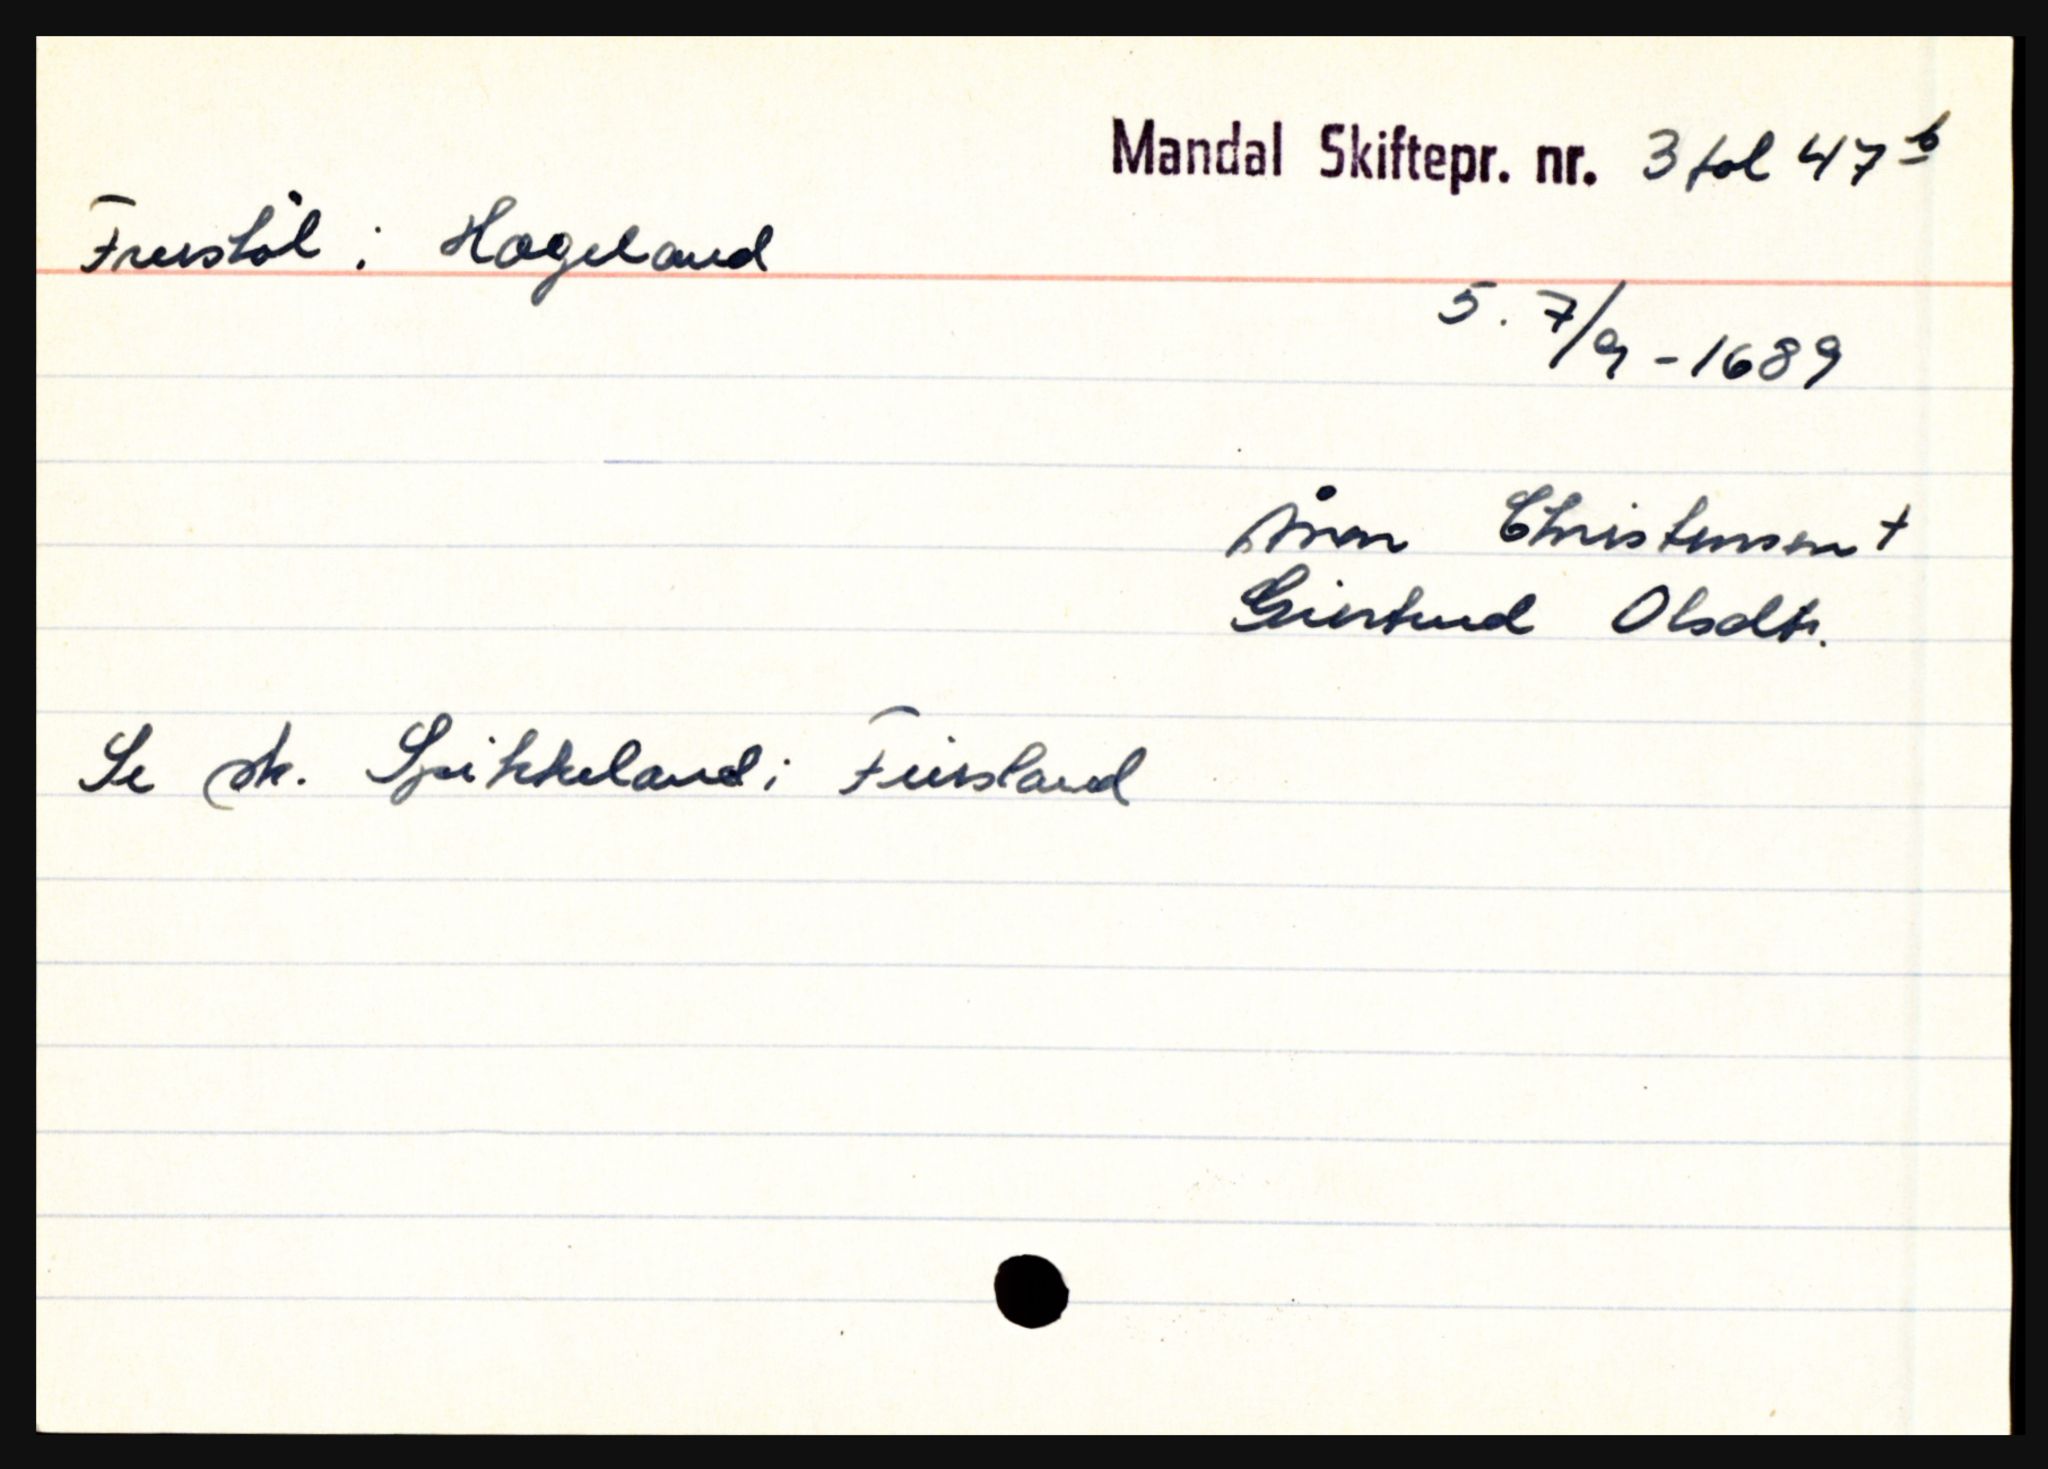 Mandal Skiftepr. nr. 3 fol 47 b
Freistøl i Hægeland
5. 7/9 - 1689
Christensen †
Giertrud Olsdtr.
Se sk. Spikkeland i Finsland